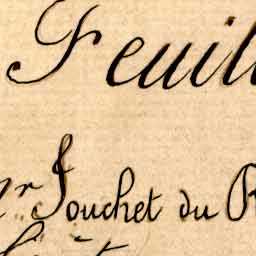 Feuill
Mr Fouchet du R